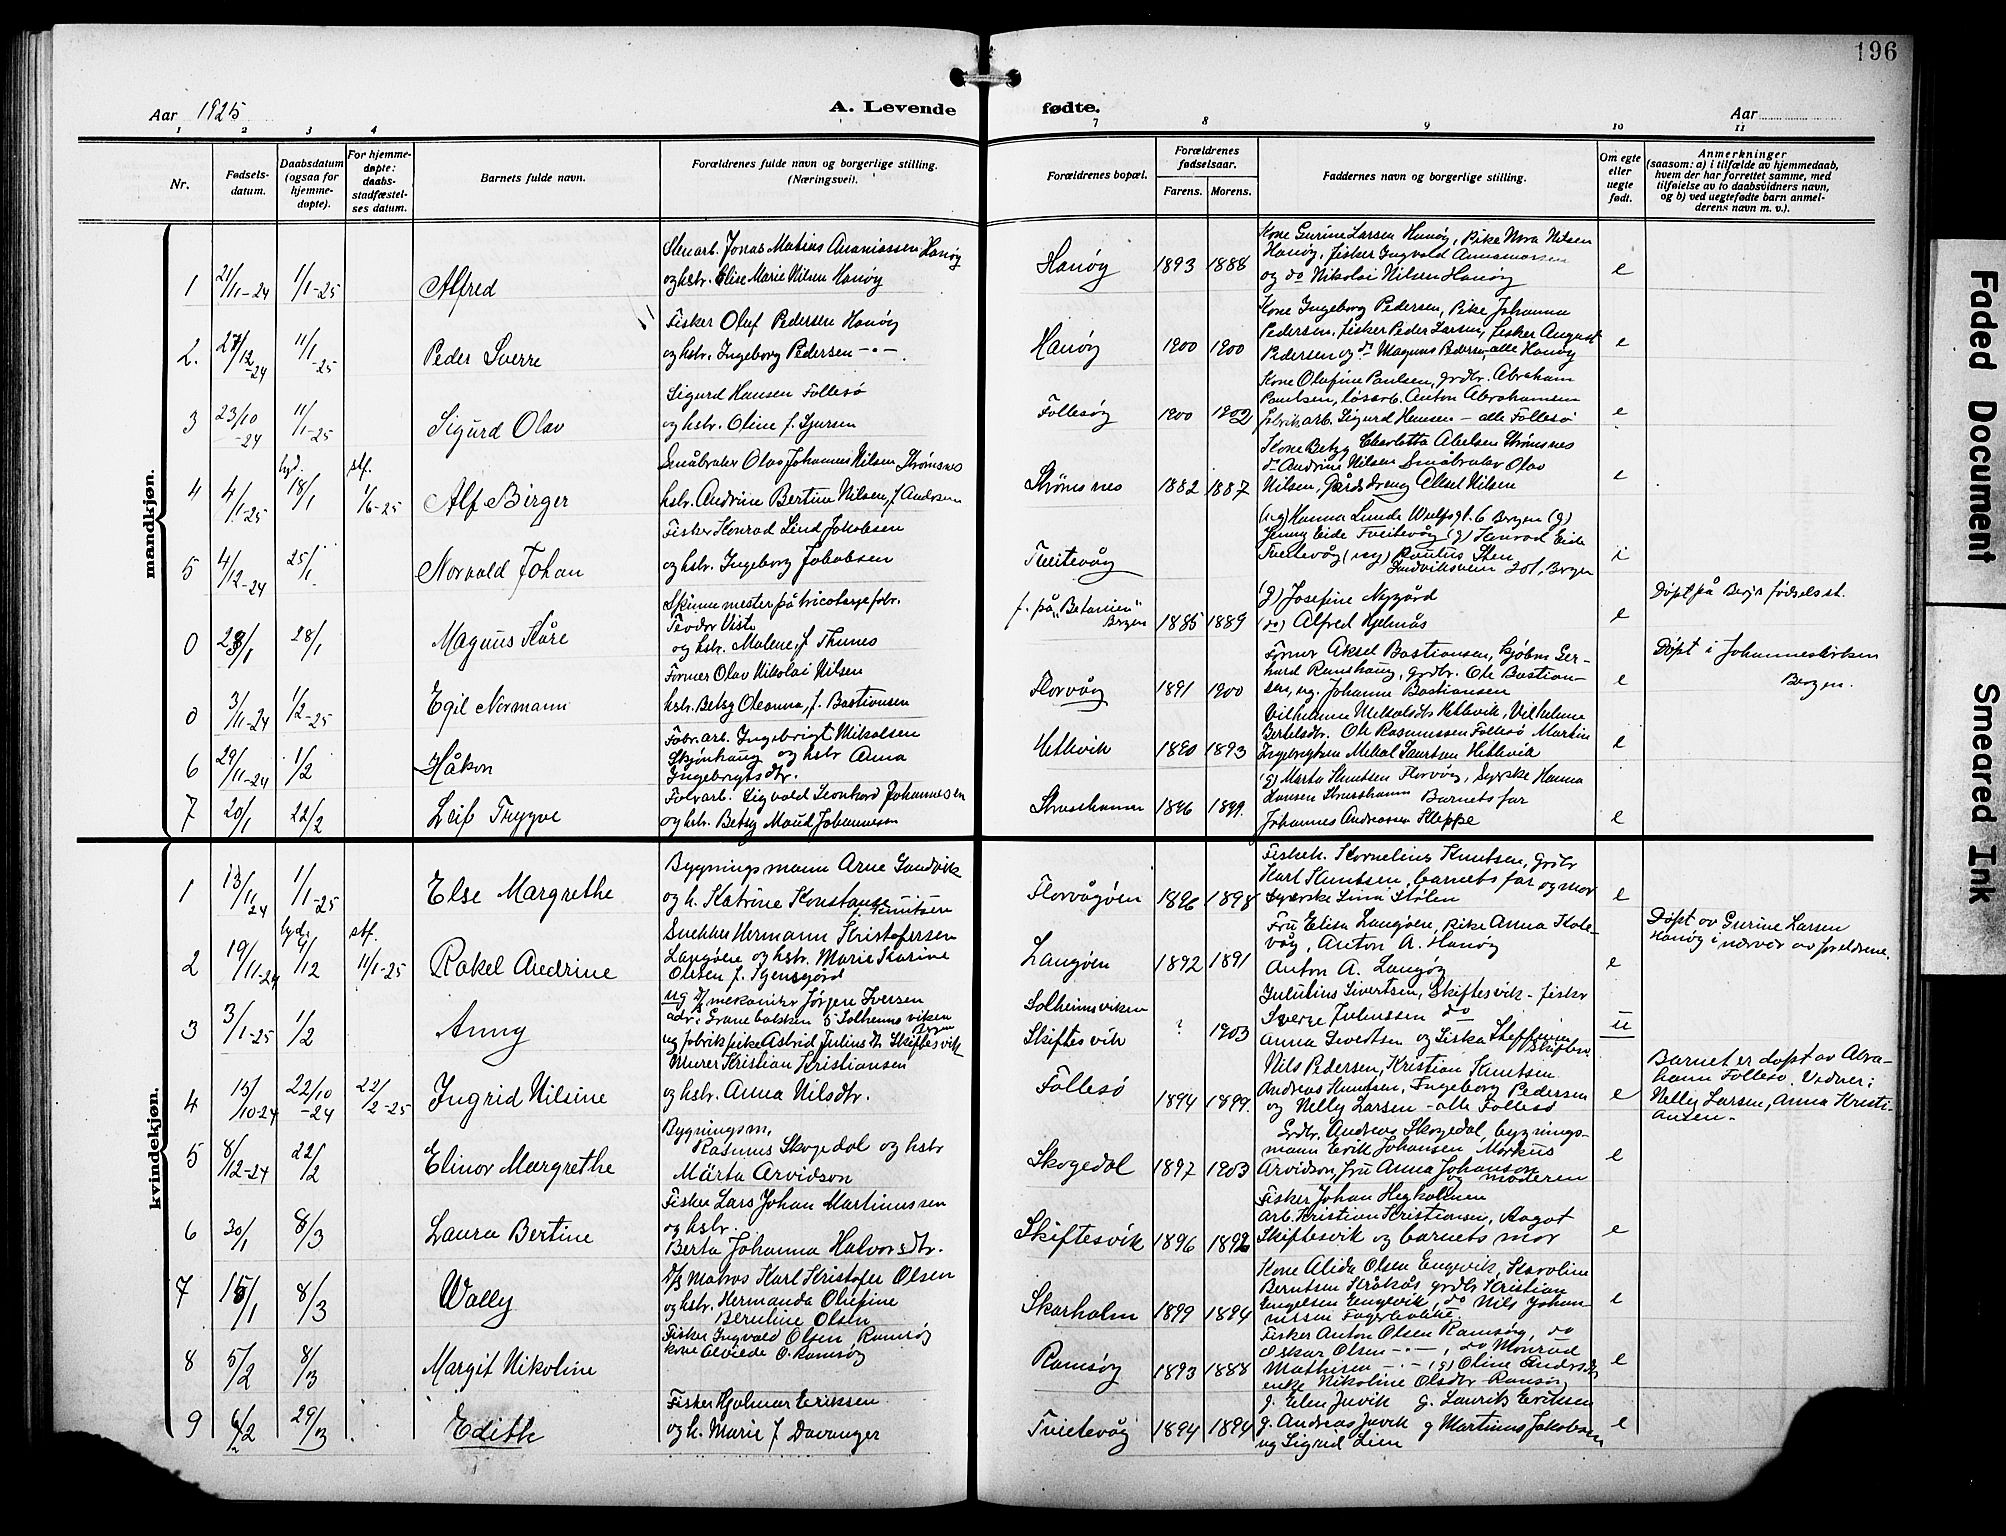 196
Aar 1925
A. Levende fødte.
Aar
1 2 3 4 7 8 9 10 11
Nr.
Fødselsdatum.
Daabsdatum (ogsaa for hjemmedøpte).
For hjemmedøpte: daabsstadfæstelses datum.
Barnets fulde navn.
Forældrenes fulde navn og borgerlige stilling. (Næringsvei).
Forældrenes bopæl.
Forældrenes fødselsaar.
Farens. Morens.
Faddernes navn og borgerlige stilling.
Om egte eller uegte født.
Anmerkninger
(saasom: a) i tilfælde av hjemmedaab, hvem der har forrettet samme, med tilføielse av to daabsvidners navn, og b) ved uegtefødte barn anmelderens navn m. v.).
mandkjøn.
1 21/11-24 1/1-25 Alfred
Stenarb. Jonas Matias Ananiassen Hanøy
og hstr. Elise Marie Nilsen Hanøy
Hanøy 1893 1888
Kone Gurine Larsen Hanøy, Pike Nora Nilsen
Hanøy, fisker Ingvald Ananiassen
og do Nikolai Nilsen Hanøy
e
2. 27/12-24 11/1-25 Peder Sverre
Fisker Oluf Pedersen Hanøy
og hstr. Ingeborg Pedersen -"-
Hanøy 1900 1900
Kone Ingeborg Pedersen, Pike Johanna
Pedersen, fisker Peder Larsen, fisker August
Pedersen og do Magnus Pedersen, alle Hanøy
e
3 23/10-24 11/1-25 Sigurd Olav
Sigurd Hansen Follesø
og hstr. Oline f. Sjursen
Follesøy 1900 1902
Kone Olufine Paulsen, grdbr. Abraham
Paulsen, løsarb. Anton Abrahamsen
fabrikarb. Sigurd Hansen - alle Follesø
e
4 4/1-25 hjd. 18/1 stf. 1/6-25 Alf Birger
Småbruker Olav Johannes Nilsen Strømsnes
hstr. Andrine Bertine Nilsen, f. Andersen
Strømsnes 1882 1887
Kone Betzy Charlotta Abelsen Strømsnes
do Andrine Nilsen Småbruker Olav
Nilsen, Gårdsdreng Aksel Nilsen
e
5 4/12-24 25/1 Norvald Johan
Fisker Konrad Lind Jakobsen
og hstr. Ingeborg Jakobsen
Tveitevåg
(ug) Hanna Lunde Wulfsgt. 6 Bergen (g)
Jenny Eide Tveitevåg (g) Konrad Eide
Tveitevåg (ug) Paulus Sten
Sandviksveien 201, Bergen
i
0 28/1 28/1 Magnus Kåre
Spinnemester på tricotagefabr.
Teodor Viste
og hstr. Malene f. Thunes
f. på "Betanien" Bergen 1885 1889
(g) Josefine Nygård
(do) Alfred Hjelmås
e
Døpt på Bergs fødselsst.
0 3/11-24 1/2-25 Egil Normann
Former Olav Nikolai Nilsen
hstr. Betsy Oleanna, f. Bastiansen
Florvåg 1891 1900
Former Aksel Bastiansen, kjøbm Gerhard
Ramshaug, grdbr. Ole Bastiansen,
ug. Johanna Bastiansen
e
Døpt i Johanneskirken
Bergen.
6 29/11-24 1/2 Håkon
Fabr.arb. Ingebrigt Mikalsen
Skjønhaug og hstr Anna
Ingebrigtsdtr.
Hetlevik 1890 1893
Vilhelmine Mikalsdtr Hetlevik, Vilhelmine
Bertelsdtr. Ole Rasmussen Follesø Martin
Ingebrigtsen Mikal Lauritsen Hetlevik
e
7 20/1 22/2 Leif Trygve
Fabr.arb. Sigvald Leonhard Johannesen
og hstr. Betsy Maud Johannesen
Strusshamn 1896 1899.
(g) Marta Knutsen Florvåg, Syerske Hanna
Hansen Strusshamn Barnets far
Johannes Andreassen Kleppe
e
kvindekjøn.
1 13/11 24 1/1-25 Else Margrethe
Bygningsmann Arne Sandvik
og h. Katrine Konstanse
f. Knutsen
Florvågøen 1896 1898
Fiskeh. Kornelius Knutsen, grdbr
Karl Knutsen, barnets far og mor
Syerske Lina Stølen
e
2 19/11-24 hjd. 9/12 stf. 11/1-25 Rakel Andrine
Snekker Hermann Kristofersen
Langøene og hstr. Marie Karine
Olsen f. Igensgård
Langøen 1892 1891
Fru Elise Langøen, pike Anna Kolevåg,
Anton A. Hanøy
Anton A. Langøy
e
Døpt av Gurine Larsen
Hanøy i nærvær av foreldrene.
3 3/1-25 1/2 Anny
ug d/s mekaniker Jørgen Iversen
adr: Granebakken 5 Solheimsviken
Bergen
ug fabrikpike Astrid Juliusdtr Skiftesvik
Solheimsviken
Skiftesvik ? 1903
Julius Sivertsen, Skiftesvik - fisker
Sverre Juliussen do
Anna Sivertsen og Liska Steffensen
Skiftesv.
u
4 15/10-24 22/10-24 22/2-25 Ingrid Nilsine
Murer Kristian Kristiansen
og hstr. Anna Nilsdtr.
Follesø 1894 1899.
Nils Pedersen, Kristian Knutsen
Andreas Knutsen, Ingeborg Pedersen
og Nelly Larsen - alle Follesø
e
Barnet er døpt av Abraham
Follesø. Vidner:
Nelly Larsen, Anna Kristiansen.
5 8/12-24 22/2 Elinor Margrethe
Bygningsm.
Rasmus Skogedal og hstr
Märta Arvidson
Skogedal 1897 1903
Grdbr. Andreas Skogedal, bygningsmann
Erik Johansen Markus
Arvidson, fru Anna Johanson
og moderen
e
6 30/1 8/3 Laura Bertine
Fisker Lars Johan Martinussen
og hstr.
Berta Johanna Halvorsdtr.
Skiftesvik 1896 1892
Fisker Johan Hegholmen
arb. Kristian Kristiansen, Aagot
Skiftesvik og barnets mor
e
7 15/1 8/3 Wally
D/s Matros Karl Kristofer Olsen
og hstr. Hermanda Olufine
Berntine Olsen
Skarholm 1899 1894
Kone Alida Olsen Engevik, Karoline
Berntsen Kråkås, grdbr Kristian
Engelsen Engevik, do Nils Johannessen
Fagerbakke.
e
8 5/2 8/3 Margit Nikoline
Fisker Ingvald Olsen Ramsøy
kone Alvilde O. Ramsøy
Ramsøy 1893 1888
Fisker Anton Olsen Ramsøy, do
Oskar Olsen -"-, do Monrad
Mathisen -"- (g) Oline Andersdtr
enke Nikoline Olsdtr Ramsøy
e
9 6/2 29/3 Edith
Fisker Hjalmar Eriksen
og h. Marie f Davanger
Tveitevåg 1894 1894
g. Elen Juvik g. Laurits Eriksen
g. Andreas Juvik g Martinus Jakobsen
ug Sigrid Lien
e
Faded Document
Smeared Ink